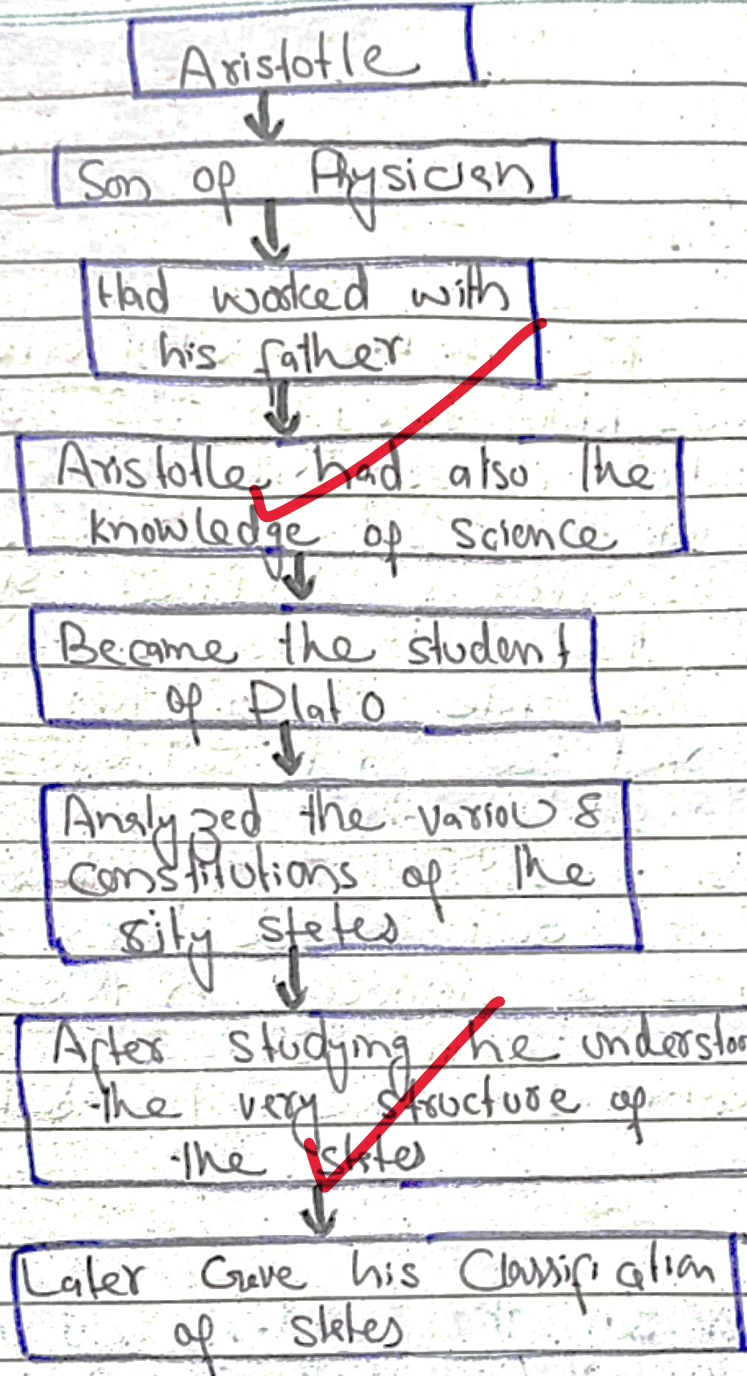 Aristotle
Son of Physician
Had worked with
his father
Aristotle had also the
knowledge of science
Became the student
of Plato
Analyzed the various
constitutions of the
city states
After studying he understoo
the very structure of
the states
Later Gave his Classification
of states